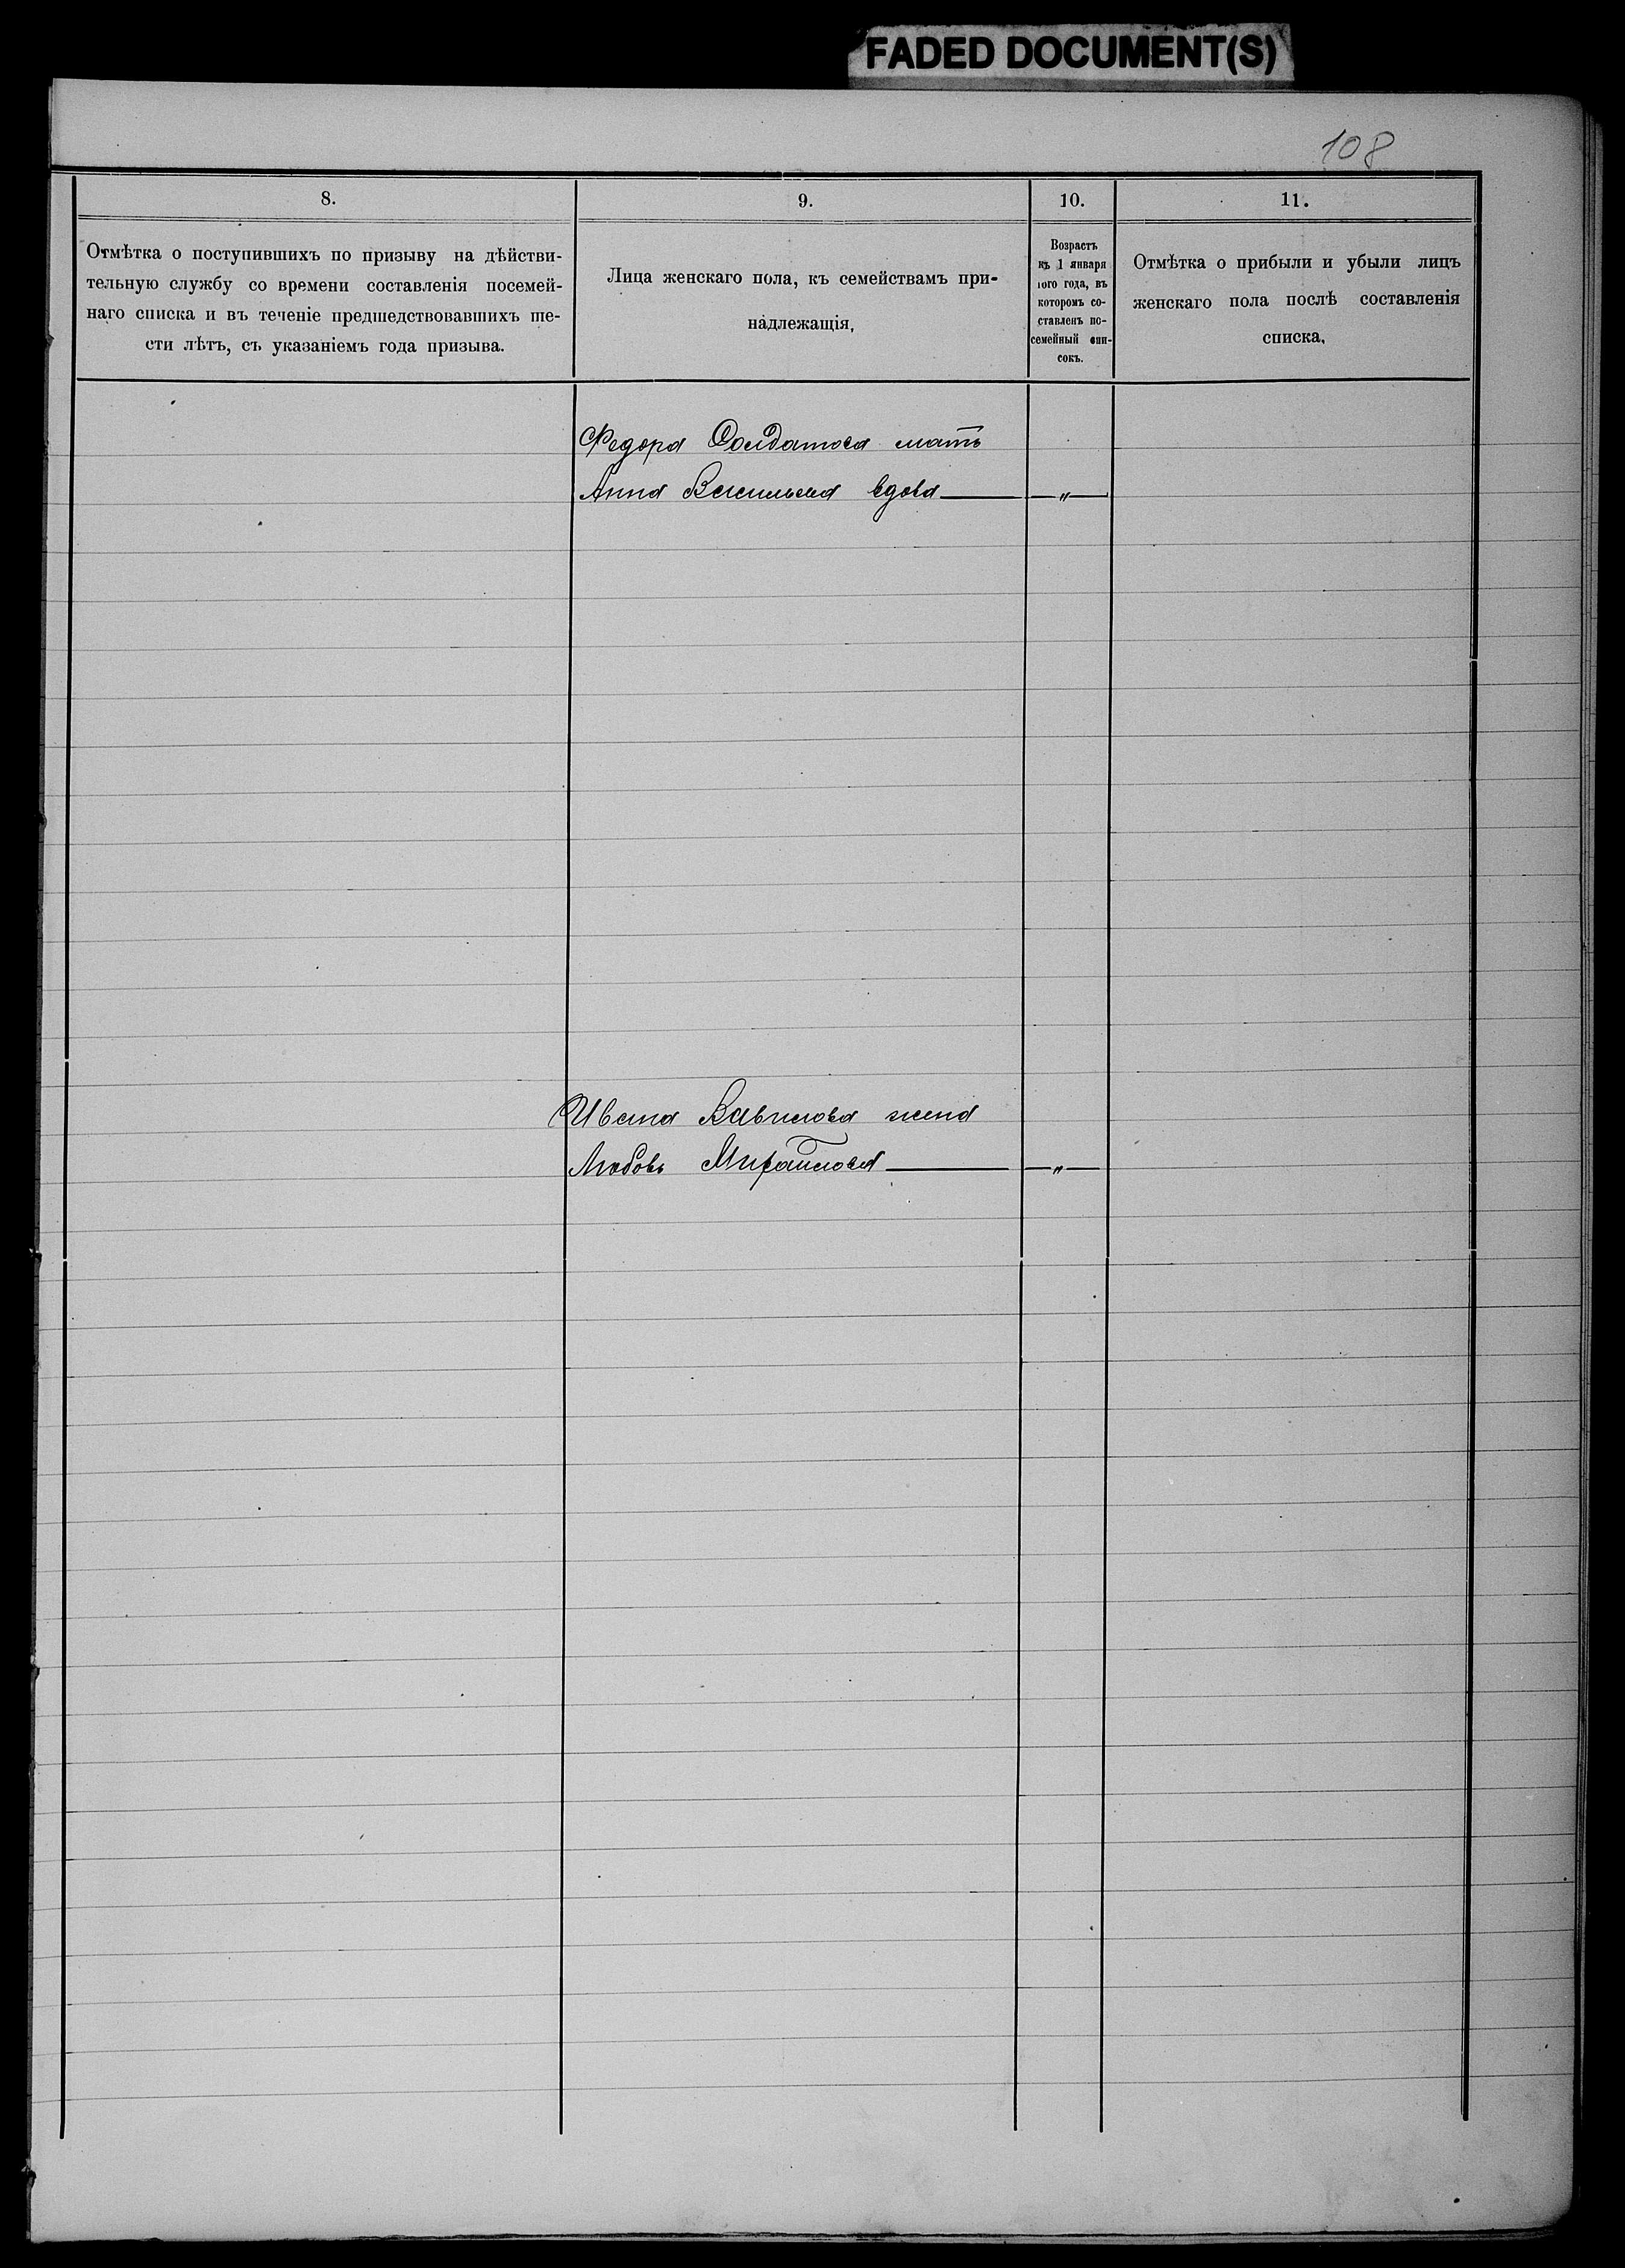 FADED DOCUMENT(S)
108
8.
9.
10.
11.
Отмѣтка о поступившихъ по призыву на дѣйстви-
тельную службу со времени составленія посемей-
наго списка и въ теченіе предшедствовавшихъ ше-
сти лѣтъ, съ указаніемъ года призыва.
Лица женскаго пола, къ семействамъ при-
надлежащія,
Возрастъ
къ 1 января
того года, въ
которомъ со-
ставленъ по-
семейный спи-
сокъ.
Отмѣтка о прибыли и убыли лицъ
женскаго пола послѣ составленія
списка,
Федора Солдатова мать
Анна Васильева вдова — „ —
Ивана Вавилова жена
Любовь Михайлова — „ —